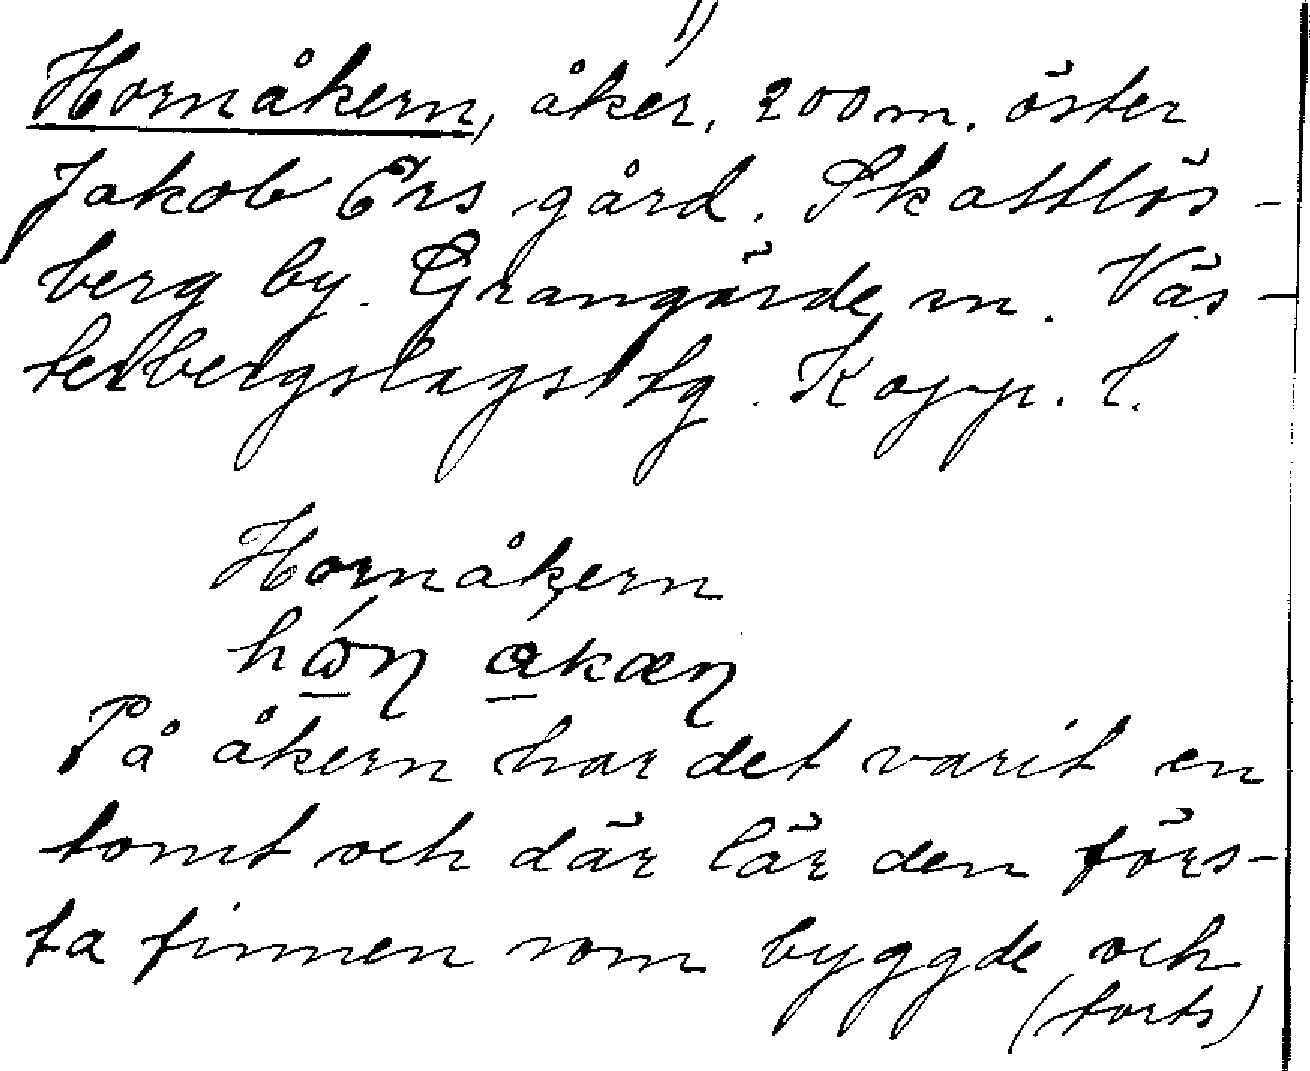 1)
Hornåkern, åker, 200 m. öster
Jakob Ers gård. Skattlös-
berg by. Grangärde, m. Väs-
terbergslags tg. Kopp. l.
Hornåkern
På åkern har det varit en
tomt och där lär den förs-
ta finnen som byggde och
(forts)